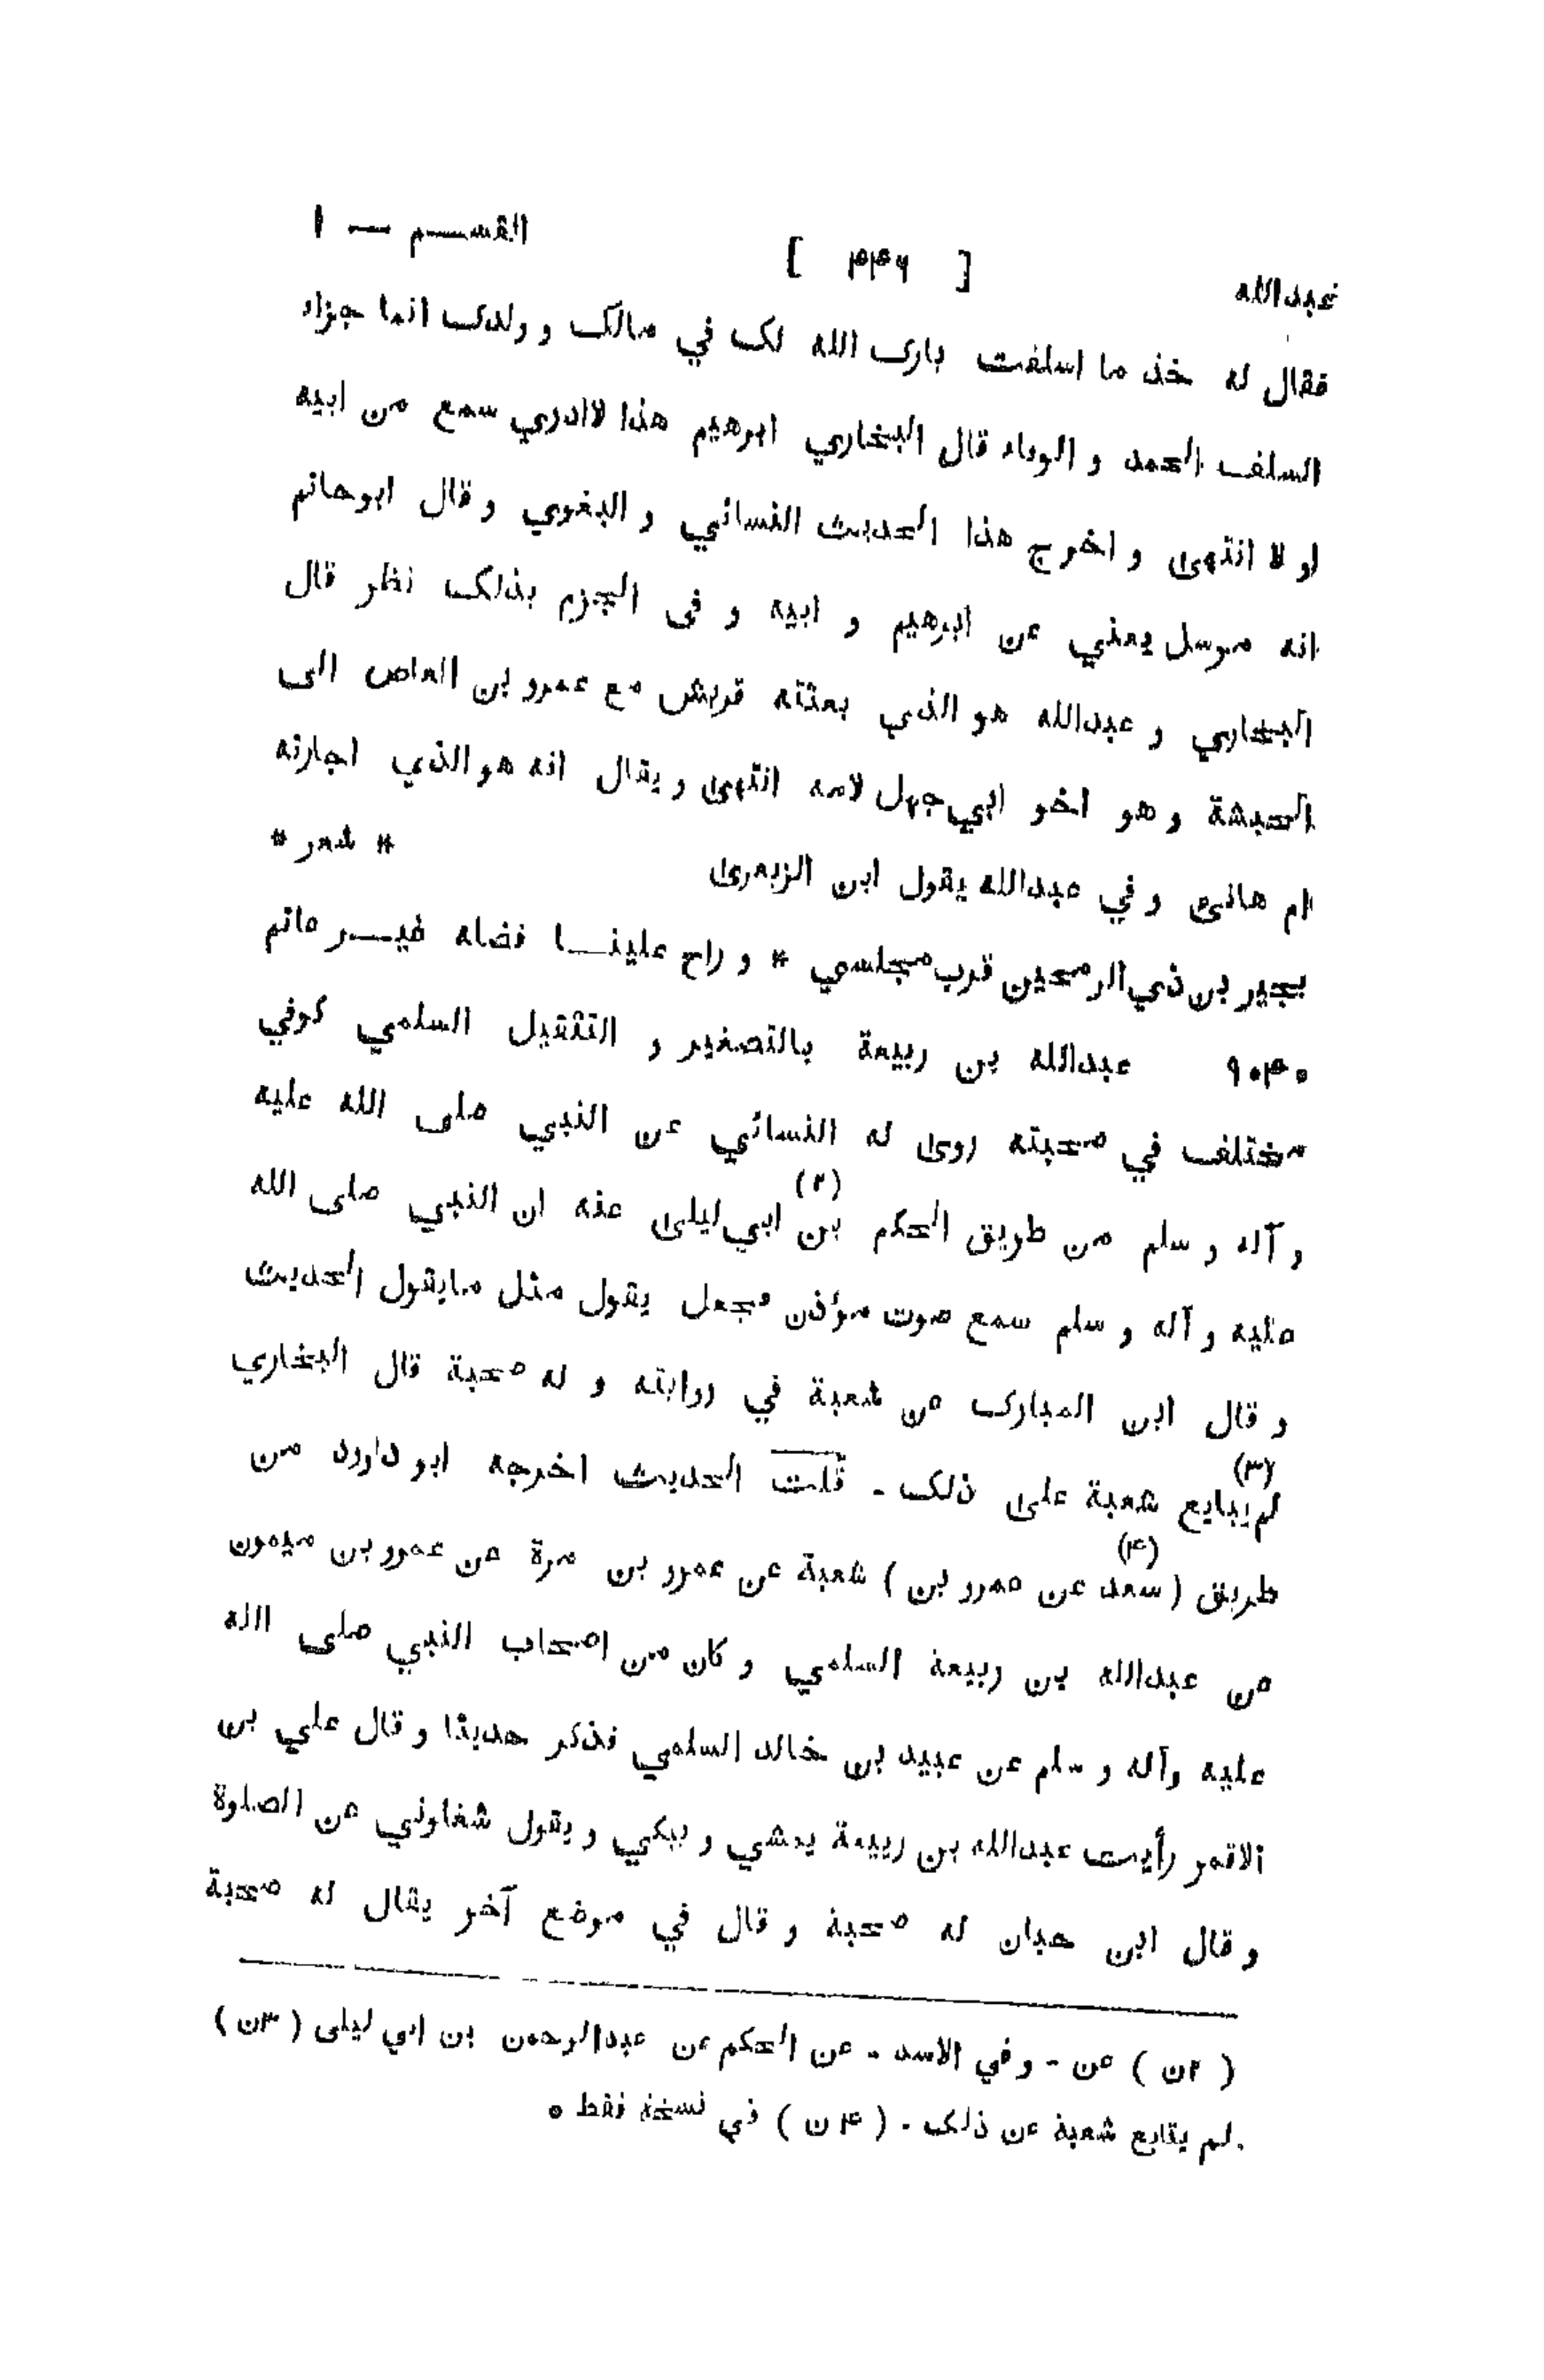 عبدالله [ ۴۴۶ ] القسم — ۱
فقال له خذ ما اسلفت بارک الله لک في مالک و ولدک انما جزاء
السلف الحمد و الوفاء قال البخاري ابرهيم هذا لاادري سمع من ابيه
او لا انتهى و اخرج هذا الحديث النسائي و البغوي و قال ابوحاتم
انه مرسل يعني عن ابرهيم و ابيه و فى الجزم بذلک نظر قال
البخاري و عبدالله هو الذي بعثته قريش مع عمرو بن العاص الى
الحبشة و هو اخو ابي جهل لامه انتهى و يقال انه هو الذي اجارته
ام هانئ و في عبدالله يقول ابن الزبعرى * شعر *
بجير بن ذي الرمحين قرب مجلسي * و راح علينا فضله غير عاتم
عبدالله بن ربيعة بالتصغير و التثقيل السلمي كوفي
مختلف في صحبته روى له النسائي عن النبي صلى الله عليه
و آله و سلم من طريق الحكم بن (۲) ابي ليلى عنه ان النبي صلى الله
عليه و آله و سلم سمع صوت مؤذن فجعل يقول مثل مايقول الحديث
و قال ابن المبارک عن شعبة في روايته و له صحبة قال البخاري
لم يبايع (۳) شعبة على ذلک - قلت الحديث اخرجه ابو داوود من
طريق ( سعد (۴) عن عمرو بن ) شعبة عن عمرو بن مرة عن عمرو بن ميمون
عن عبدالله بن ربيعة السلمي و كان من اصحاب النبي صلى الله
عليه وآله و سلم عن عبيد بن خالد السلمي فذكر حديثا و قال علي بن
الاقمر رأيت عبدالله بن ربيعة يمشي و يبكي و يقول شغلوني عن الصلوة
و قال ابن حبان له صحبة و قال في موضع آخر يقال له صحبة
( ۲ن ) عن - و في الاسد - عن الحكم عن عبدالرحمن بن ابي ليلى ( ۳ن )
لم يتابع شعبة عن ذلک - ( ۴ن ) في نسخة فقط ه